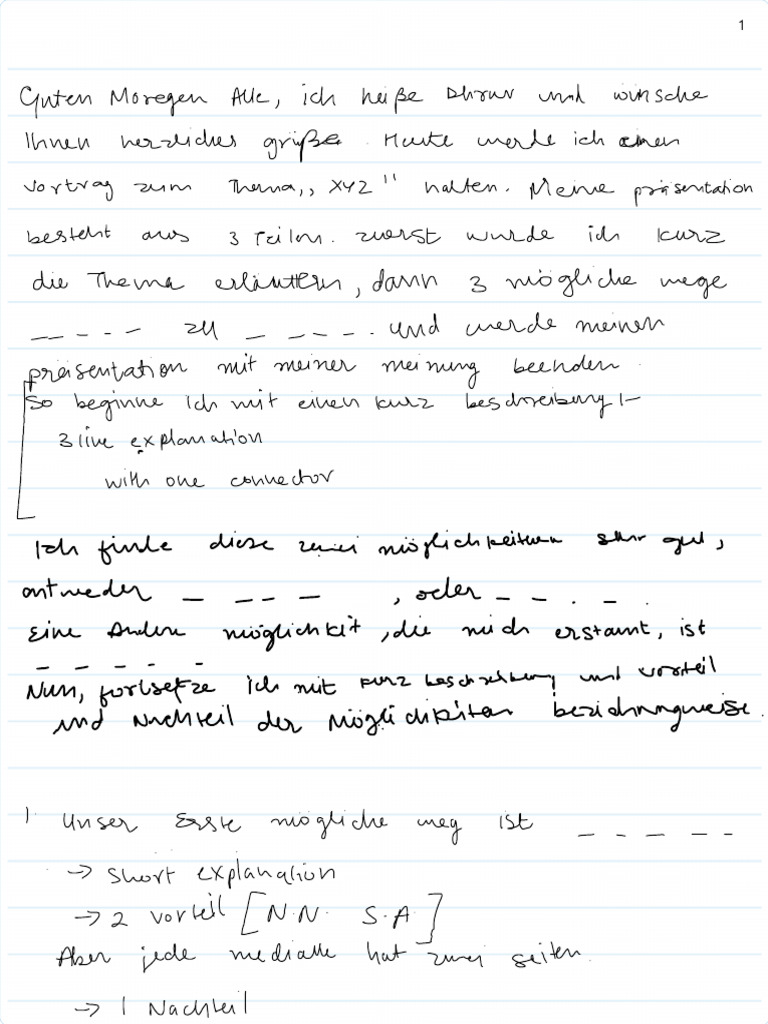 1
Guten Moregen Alle, ich heiße Dhruv und wünsche
Ihnen herzliches grüße. Heute werde ich einen
vortrag zum Thema,, XYZ" halten. Meine präsentation
besteht aus 3 Teilen. zuerst wurde ich kurz
die Thema erläuttern, dann 3 mögliche wege
_ _ _ _ _ zu _ _ _ _ _. und werde meinen
präsentation mit meiner meinung beenden.
So beginne ich mit einen kurz beschreibung :-
3 line explanation
with one connector
Ich finde diese zwei möglichkeiten sehr gut,
entweder _ _ _ _ , oder _ _ . _ .
Eine Andere möglichkit, die mich erstaunt, ist
_ _ _ _ _
Nun, fortsetze ich mit kurz beschreibung und vorteil
und Nachteil der möglichkiten bezichnungweise.
1. Unser Erste mögliche weg ist _ _ _ _ _
→ short explanation
→ 2 vorteil [N.N. S.A]
Aber jede medialle hat zwei seiten.
→ 1 Nachteil